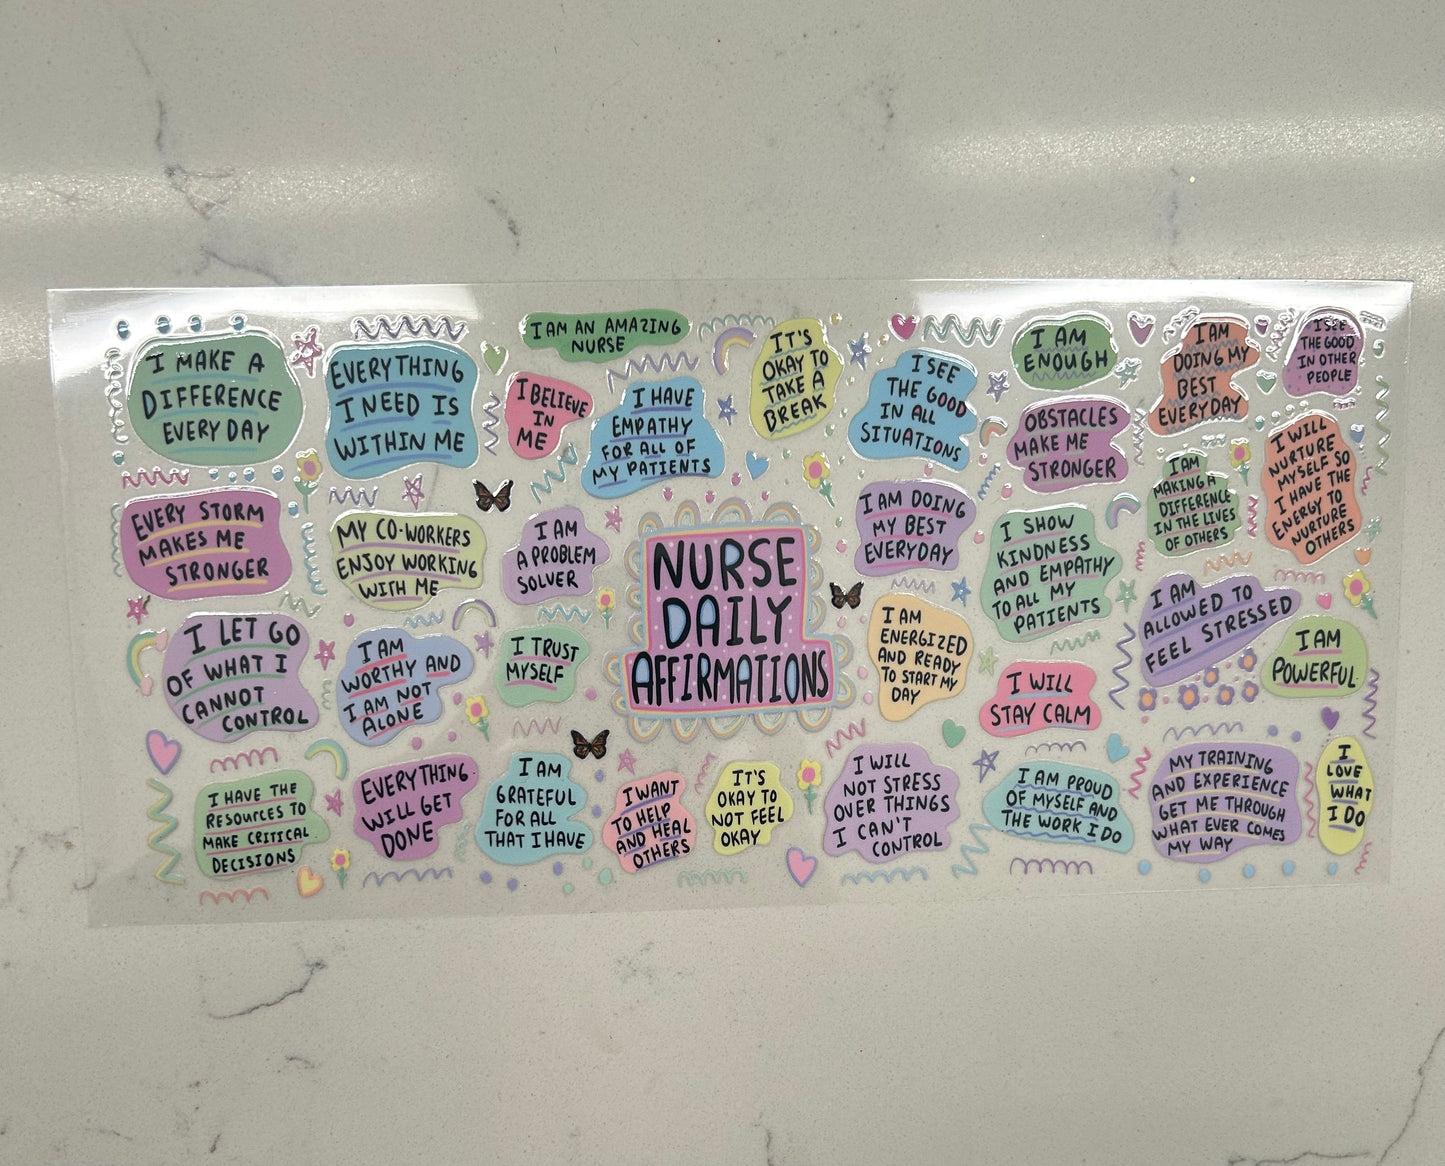 I MAKE A
DIFFERENCE
EVERY DAY
EVERYTHING
I NEED IS
WITHIN ME
I AM AN AMAZING
NURSE
I BELIEVE
IN
ME
I HAVE
EMPATHY
FOR ALL OF
MY PATIENTS
IT'S
OKAY TO
TAKE A
BREAK
I SEE
THE GOOD
IN ALL
SITUATIONS
I AM
ENOUGH
OBSTACLES
MAKE ME
STRONGER
I AM
DOING MY
BEST
EVERYDAY
I SEE
THE GOOD
IN OTHER
PEOPLE
EVERY STORM
MAKES ME
STRONGER
MY CO-WORKERS
ENJOY WORKING
WITH ME
I AM
A PROBLEM
SOLVER
NURSE
DAILY
AFFIRMATIONS
I AM DOING
MY BEST
EVERYDAY
I SHOW
KINDNESS
AND EMPATHY
TO ALL MY
PATIENTS
I AM
MAKING A
DIFFERENCE
IN THE LIVES
OF OTHERS
I WILL
NURTURE
MYSELF SO
I HAVE THE
ENERGY TO
NURTURE
OTHERS
I LET GO
OF WHAT I
CANNOT
CONTROL
I AM
WORTHY AND
I AM NOT
ALONE
I TRUST
MYSELF
I AM
ENERGIZED
AND READY
TO START MY
DAY
I WILL
STAY CALM
I AM
ALLOWED TO
FEEL STRESSED
I AM
POWERFUL
I HAVE THE
RESOURCES TO
MAKE CRITICAL
DECISIONS
EVERYTHING
WILL GET
DONE
I AM
GRATEFUL
FOR ALL
THAT I HAVE
I WANT
TO HELP
AND HEAL
OTHERS
IT'S
OKAY TO
NOT FEEL
OKAY
I WILL
NOT STRESS
OVER THINGS
I CAN'T
CONTROL
I AM PROUD
OF MYSELF AND
THE WORK I DO
MY TRAINING
AND EXPERIENCE
GET ME THROUGH
WHAT EVER COMES
MY WAY
I
LOVE
WHAT
I DO